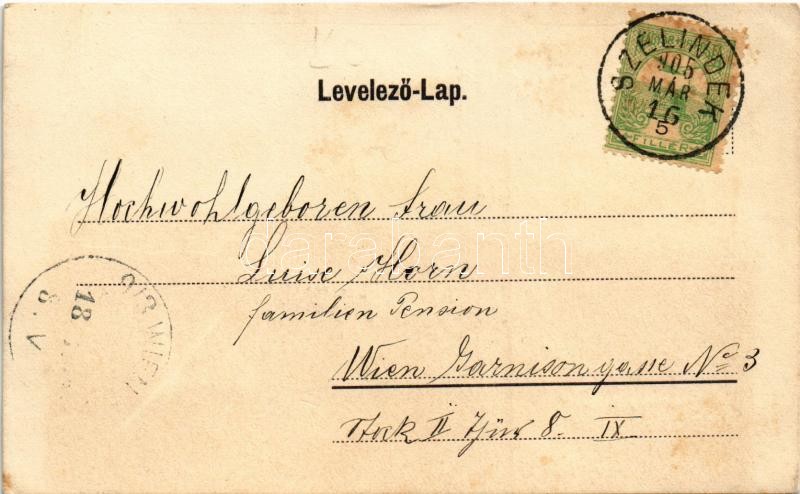 Levelező-Lap.
SZELINDEK
905
MÁR
16
5
FILLÉR
Hochwohlgeboren Frau
Luise Horn
familien Pension
Wien Garnisongasse No 3
Stock II Thür 8. IX
9/3 WIEN
18
darabanth